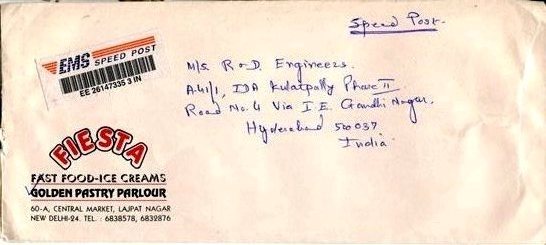 Speed Post.
EMS SPEED POST
EE 26147335 3 IN
M/S. R&D Engineers.
A4/1, IDA Kukatpally Phase II
Road No. 4 Via I.E. Gandhi Nagar.
Hyderabad 500037
India
FIESTA
FAST FOOD-ICE CREAMS
GOLDEN PASTRY PARLOUR
60-A, CENTRAL MARKET, LAJPAT NAGAR
NEW DELHI-24. TEL. : 6838578, 6832876